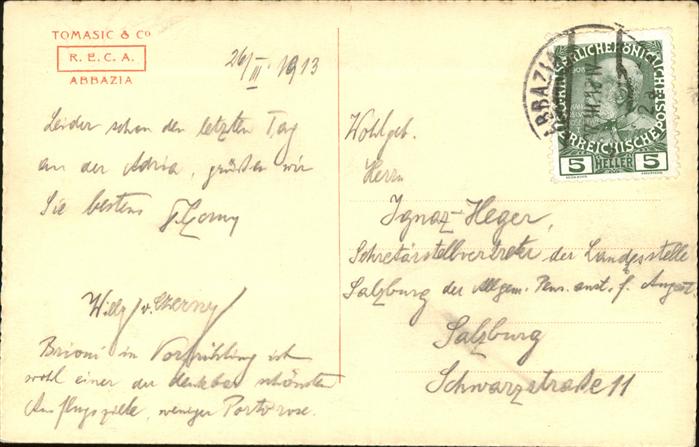 TOMASIC & Co
R. E. C. A.
ABBAZIA
26/III. 1913
Leider schon den letzten Tag
an der Adria, grüßen wir
Sie bestens
Willy v. Czerny
Brioni im Vorfrühling ist
wohl einer der denkbar schönsten
Ausflugsziele, weniger Portorose.
ABBAZIA
KAISERLICHE KÖNIGLICHE ÖSTERREICHISCHE POST
5 HELLER 5
Wohlgeb.
Herrn
Ignaz Heger,
Sekretärstellvertreter der Landesstelle
Salzburg der Allgem. Pens. anst. f. Angest
Salzburg
Schwarzstraße 11